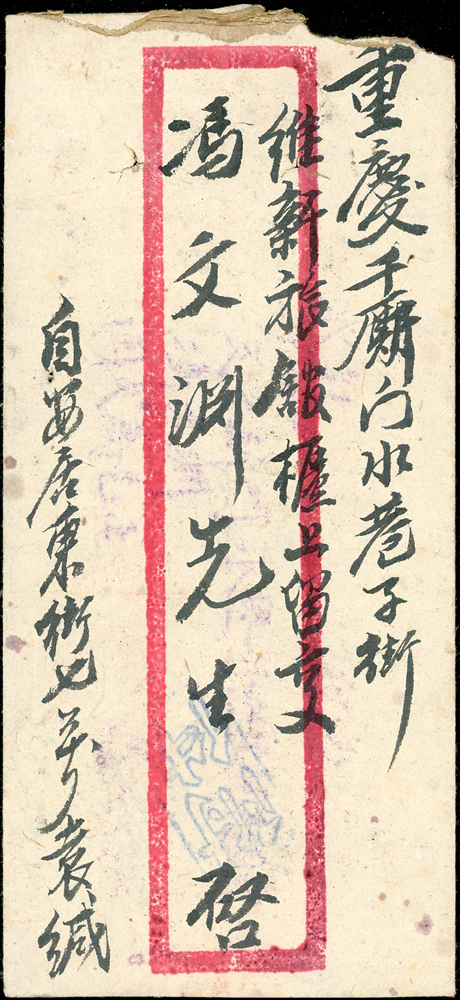 重慶千厮门水巷子街
維新旅館櫃上留交
馮文渊先生 啓
自安居東街七号袁缄